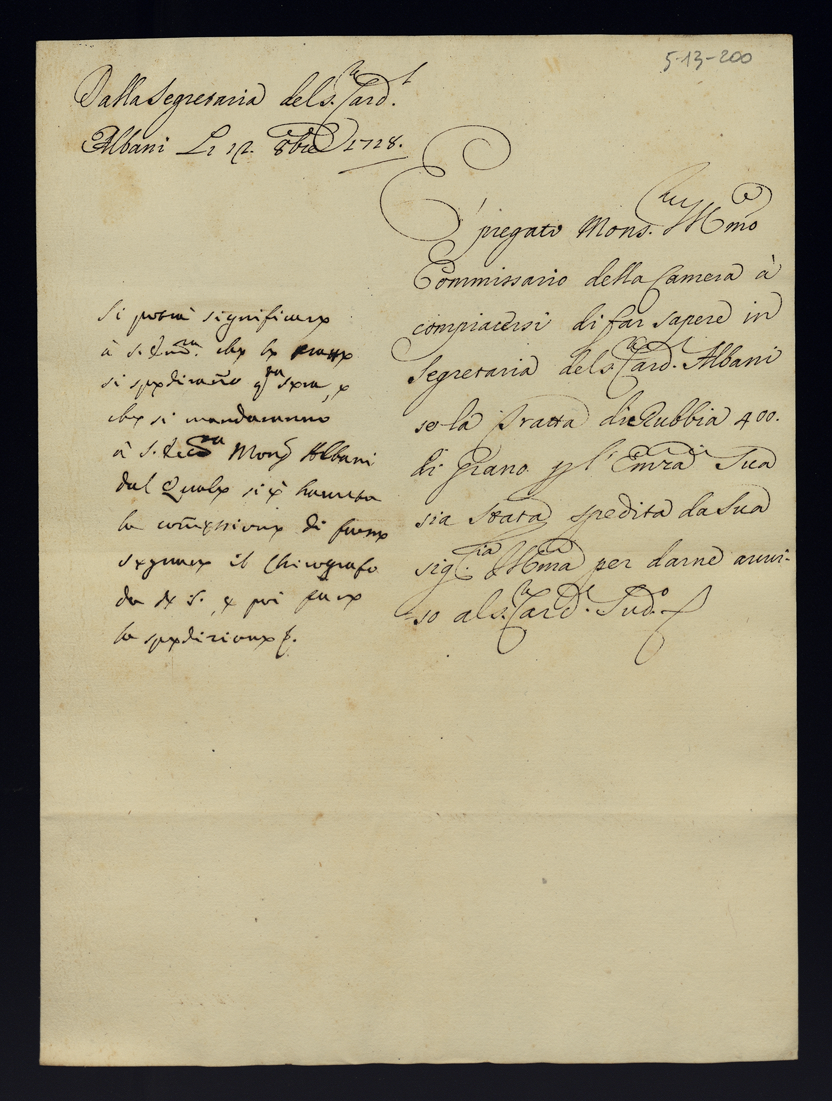 5-13-200
Dalla Segretaria del S.r Card.l
Albani Li 12. 8bre 1728.
È pregato Mons.r Ill.mo
Commissario della Camera à
compiacersi di far sapere in
Segretaria del S.r Card. Albani
se la Tratta di Rubbia 400.
di Grano p l'Em.za Sua
sia stata spedita da Sua
Sig.ria Ill.ma per darne avvi-
so al S.r Card.l Sud.o
Si potrà significare
à S. Em.za che le tratte
si spediranno q.ta sera, e
che si manderanno
à S. Ecc.za Mons Albani
dal Quale si è havuta
la com̃issione di farne
segnare il Chirografo
da N. S., e poi farne
la spedizione